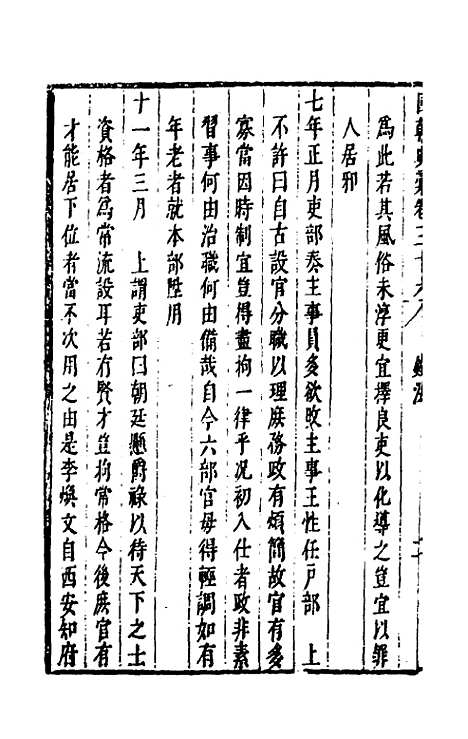 國朝典彙卷三十六　銓法
為此若其風俗未淳更宜擇良吏以化導之豈宜以罪
人居邪
七年正月吏部奏主事員多欲改主事王性任戶部　上
不許曰自古設官分職以理庶務政有煩簡故官有多
寡當因時制宜豈得盡拘一律乎况初入仕者政非素
習事何由治職何由備哉自今六部官毋得輕調如有
年老者就本部陞用
十一年三月　上謂吏部曰朝廷懸爵祿以待天下之士
資格者為常流設耳若有賢才豈拘常格今後庶官有
才能居下位者當不次用之由是李煥文自西安知府